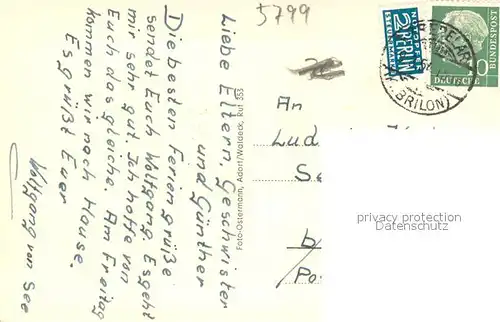 5799
Liebe Eltern, Geschwister
und Günther
Die besten Feriengrüße
sendet Euch Wolfgang. Es geht
mir sehr gut. Ich hoffe von
Euch das gleiche. Am Freitag
kommen wir nach Hause.
Es grüßt Euer
Wolfgang von See
Foto-Ostermann, Adorf/Waldeck, Ruf 353
An
Lud
Se
b
Po
2 NOTOPFER
BERLIN
STEUERMARKE
DEUTSCHE
BUNDESPOST
10
BRILON)
privacy protection
Datenschutz